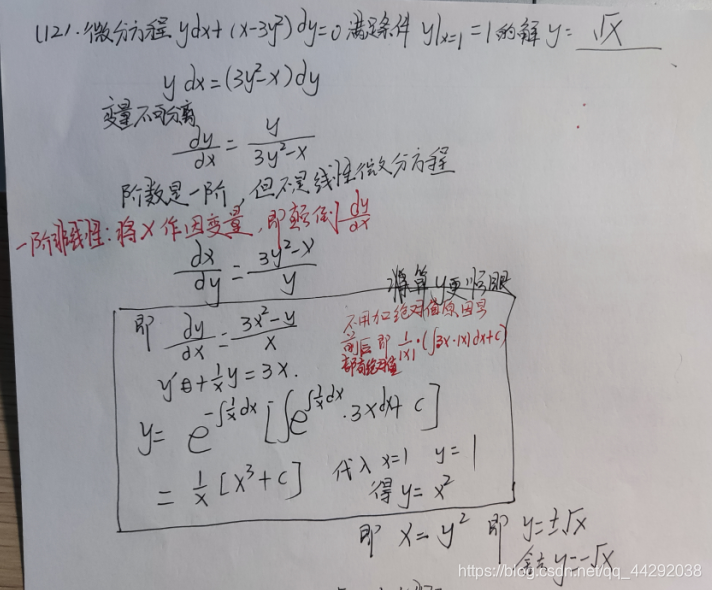 (12).微分方程 ydx+(x-3y²)dy=0 满足条件 y|x=1=1的解 y= √x
y dx=(3y²-x)dy
变量不可分离
dy/dx = y/(3y²-x)
阶数是一阶,但不是线性微分方程
一阶非线性:将X作因变量,即颠倒 dy/dx
dx/dy = (3y²-x)/y
算y更顺眼
即 dy/dx = (3x²-y)/x
不用加绝对值原因是
前后
都有绝对值
即 1/|x|·(∫3x·|x|dx+c)
y'+1/x y=3x.
y= e^(-∫1/x dx) [∫e^(∫1/x dx)·3xdx+ c]
= 1/x [x³+c] 代入 x=1 y=1
得 y= x²
即 x= y² 即 y=±√x
y=-√x
https://blog.csdn.net/qq_44292038